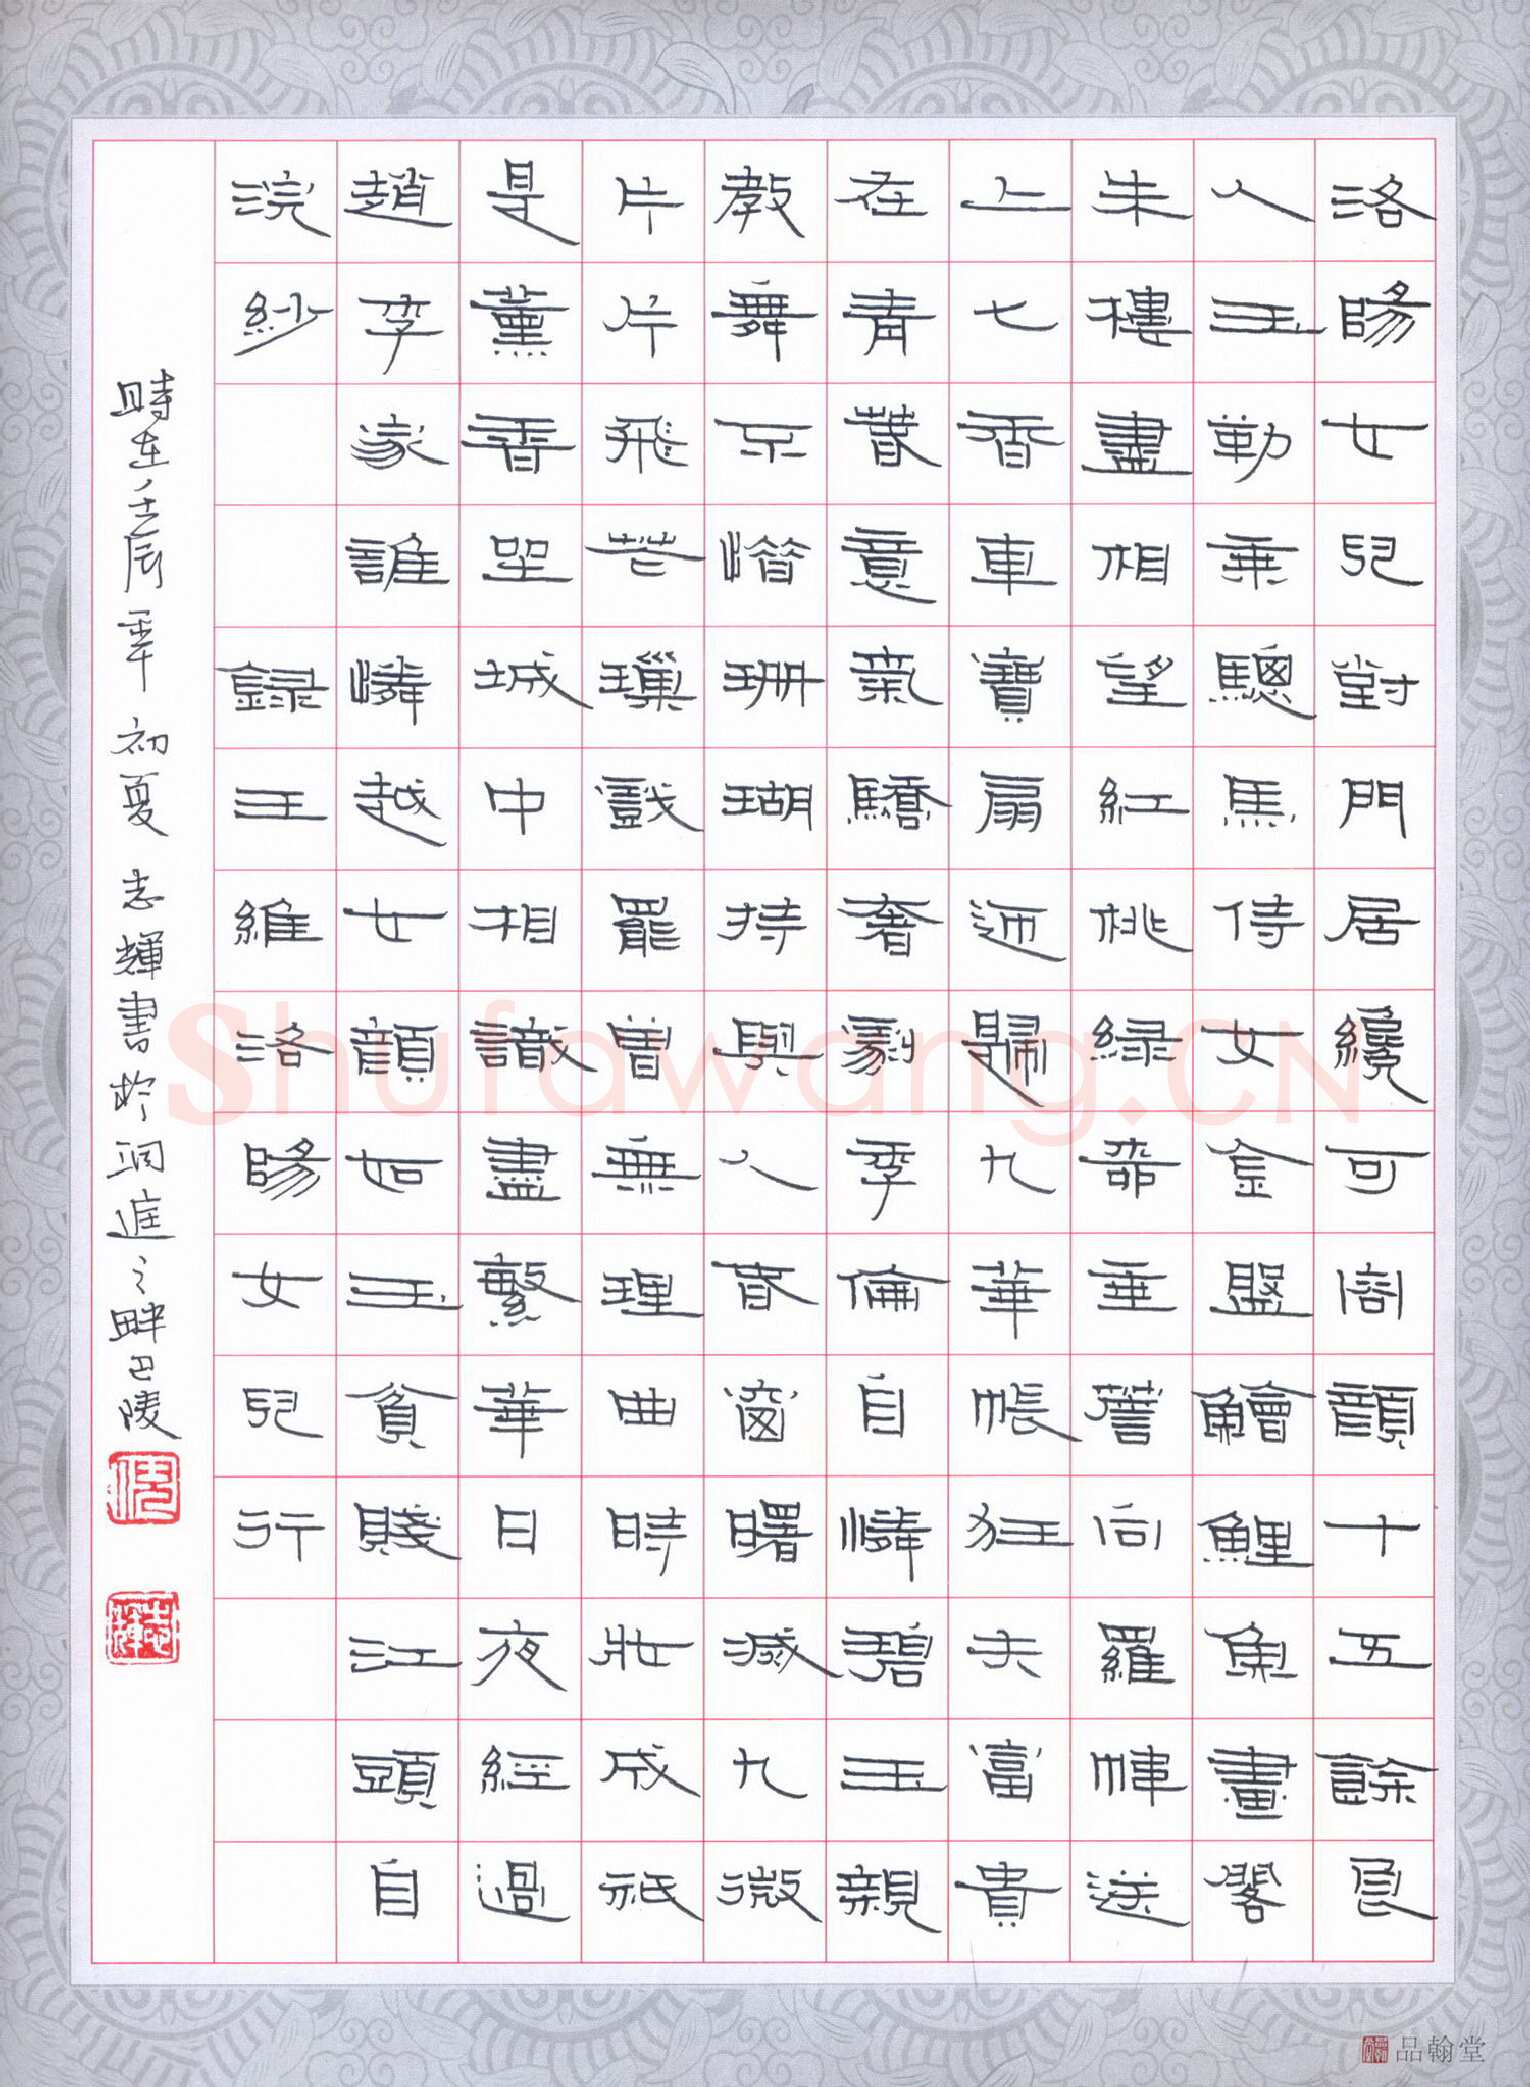 洛陽女兒對門居纔可容顏十五餘良
人玉勒乘驄馬侍女金盤鱠鯉魚畫閣
朱樓盡相望紅桃綠柳垂簷向羅幃送
上七香車寶扇迎歸九華帳狂夫富貴
在青春意氣驕奢劇季倫自憐碧玉親
教舞不惜珊瑚持與人春窗曙滅九微
片片飛花璅戲罷曾無理曲時妝成祇
是薰香坐城中相識盡繁華日夜經過
趙李家誰憐越女顏如玉貧賤江頭自
浣紗 錄王維洛陽女兒行
時在壬辰年初夏志輝書於洞庭之畔巴陵
志輝
Shufawang.CN
品翰堂